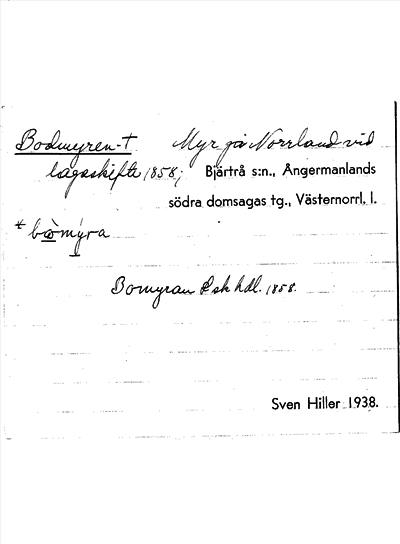 Bodmyren-† Myr på Norrland vid
lagaskifte 1858; Bjärtrå s:n., Ångermanlands
södra domsagas tg., Västernorrl. l.
* bòmýra
Bomyran Lsk hdl. 1858.
Sven Hiller 1938.